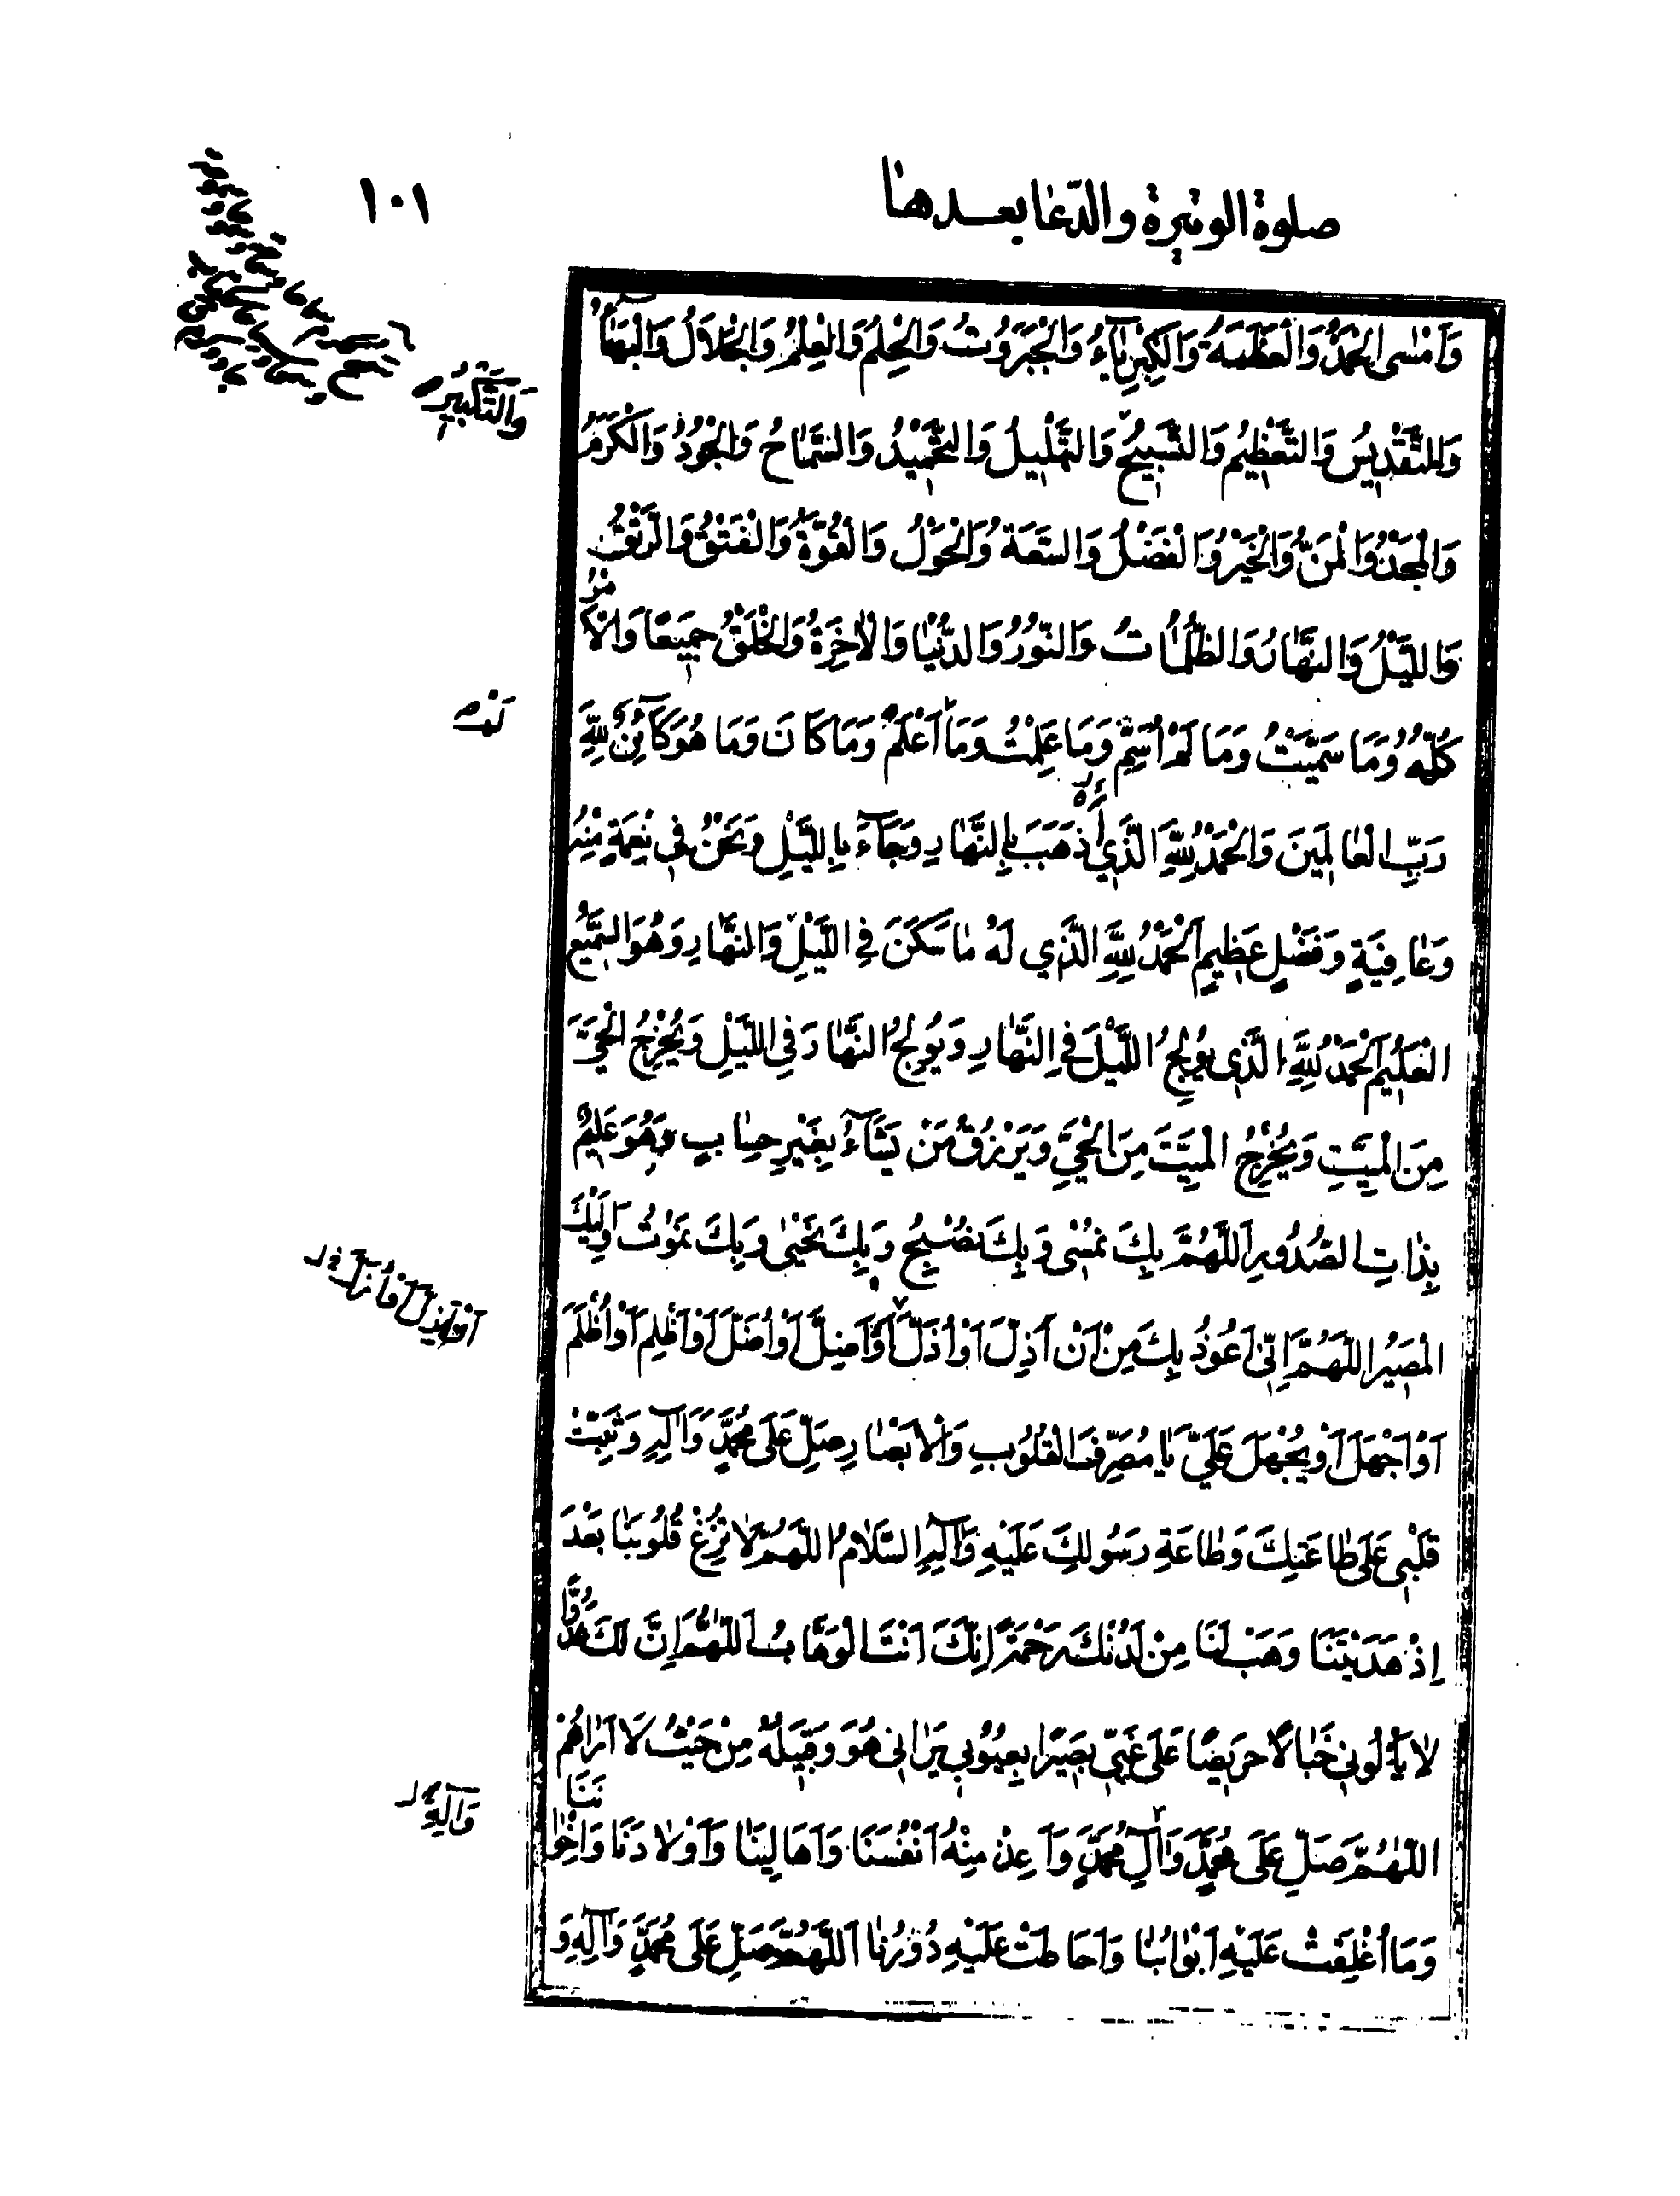 صلوة الوتيرة والدعا بعدها
١٠١
وَأَمْسَى الْحَمْدُ وَالْعَظَمَةُ وَالْكِبْرِيَاءُ وَالْجَبَرُوتُ وَالْحِلْمُ وَالْعِلْمُ وَالْجَلَالُ وَالْبَهَاءُ
وَالتَّقْدِيسُ وَالتَّعْظِيمُ وَالتَّسْبِيحُ وَالتَّهْلِيلُ وَالتَّحْمِيدُ وَالسَّمَاحُ وَالْجُودُ وَالْكَرَمُ
وَالتَّكْبِيرُ
وَالْمَجْدُ وَالْمَنُّ وَالْخَيْرُ وَالْفَضْلُ وَالسَّعَةُ وَالْحَوْلُ وَالْقُوَّةُ وَالْفَتْقُ وَالرَّتْقُ
وَاللَّيْلُ وَالنَّهَارُ وَالظُّلُمَاتُ وَالنُّورُ وَالدُّنْيَا وَالْآخِرَةُ وَالْخَلْقُ جَمِيعًا وَالْأَمْرُ
كُلُّهُ وَمَا سَمَّيْتُ وَمَا لَمْ أُسَمِّ وَمَا عَلِمْتُ وَمَا أَعْلَمُ وَمَا كَانَ وَمَا هُوَ كَائِنٌ لِلَّهِ
لَمْ
رَبِّ الْعَالَمِينَ وَالْحَمْدُ لِلَّهِ الَّذِي أَذْهَبَ بِالنَّهَارِ وَجَاءَ بِاللَّيْلِ وَنَحْنُ فِي نِعْمَةٍ مِنْهُ
وَعَافِيَةٍ وَفَضْلٍ عَظِيمٍ اَلْحَمْدُ لِلَّهِ الَّذِي لَهُ مَا سَكَنَ فِي اللَّيْلِ وَالنَّهَارِ وَهُوَ السَّمِيعُ
الْعَلِيمُ اَلْحَمْدُ لِلَّهِ الَّذِي يُولِجُ اللَّيْلَ فِي النَّهَارِ وَيُولِجُ النَّهَارَ فِي اللَّيْلِ وَيُخْرِجُ الْحَيَّ
مِنَ الْمَيِّتِ وَيُخْرِجُ الْمَيِّتَ مِنَ الْحَيِّ وَيَرْزُقُ مَنْ يَشَاءُ بِغَيْرِ حِسَابٍ وَهُوَ عَلِيمٌ
بِذَاتِ الصُّدُورِ اَللَّهُمَّ بِكَ نُمْسِي وَبِكَ نُصْبِحُ وَبِكَ نَحْيَى وَبِكَ نَمُوتُ وَإِلَيْكَ
الْمَصِيرُ اللَّهُمَّ إِنِّي أَعُوذُ بِكَ مِنْ أَنْ أَذِلَّ أَوْ أُذَلَّ أَوْ أَضِلَّ أَوْ أُضَلَّ أَوْ أَظْلِمَ أَوْ أُظْلَمَ
أَوْ أَجْهَلَ أَوْ يُجْهَلَ عَلَيَّ يَا مُصَرِّفَ الْقُلُوبِ وَالْأَبْصَارِ صَلِّ عَلَى مُحَمَّدٍ وَآلِهِ وَثَبِّتْ
قَلْبِي عَلَى طَاعَتِكَ وَطَاعَةِ رَسُولِكَ عَلَيْهِ وَآلِهِ السَّلَامُ اللَّهُمَّ لَا تُزِغْ قُلُوبَنَا بَعْدَ
إِذْ هَدَيْتَنَا وَهَبْ لَنَا مِنْ لَدُنْكَ رَحْمَةً إِنَّكَ أَنْتَ الْوَهَّابُ اَللَّهُمَّ إِنَّ لَكَ عَدُوًّا
لَا يَأْلُونِي خَبَالًا حَرِيصًا عَلَى غَيِّي بَصِيرًا بِعُيُوبِي يَرَانِي هُوَ وَقَبِيلُهُ مِنْ حَيْثُ لَا أَرَاهُمْ
اللَّهُمَّ صَلِّ عَلَى مُحَمَّدٍ وَآلِ مُحَمَّدٍ وَأَعِذْ مِنْهُ أَنْفُسَنَا وَأَهَالِينَا وَأَوْلَادَنَا وَإِخْوَانَنَا
وَآلِهِ
وَمَا أُغْلِقَتْ عَلَيْهِ أَبْوَابُنَا وَأَحَاطَتْ عَلَيْهِ دُورُنَا اَللَّهُمَّ صَلِّ عَلَى مُحَمَّدٍ وَآلِهِ وَ